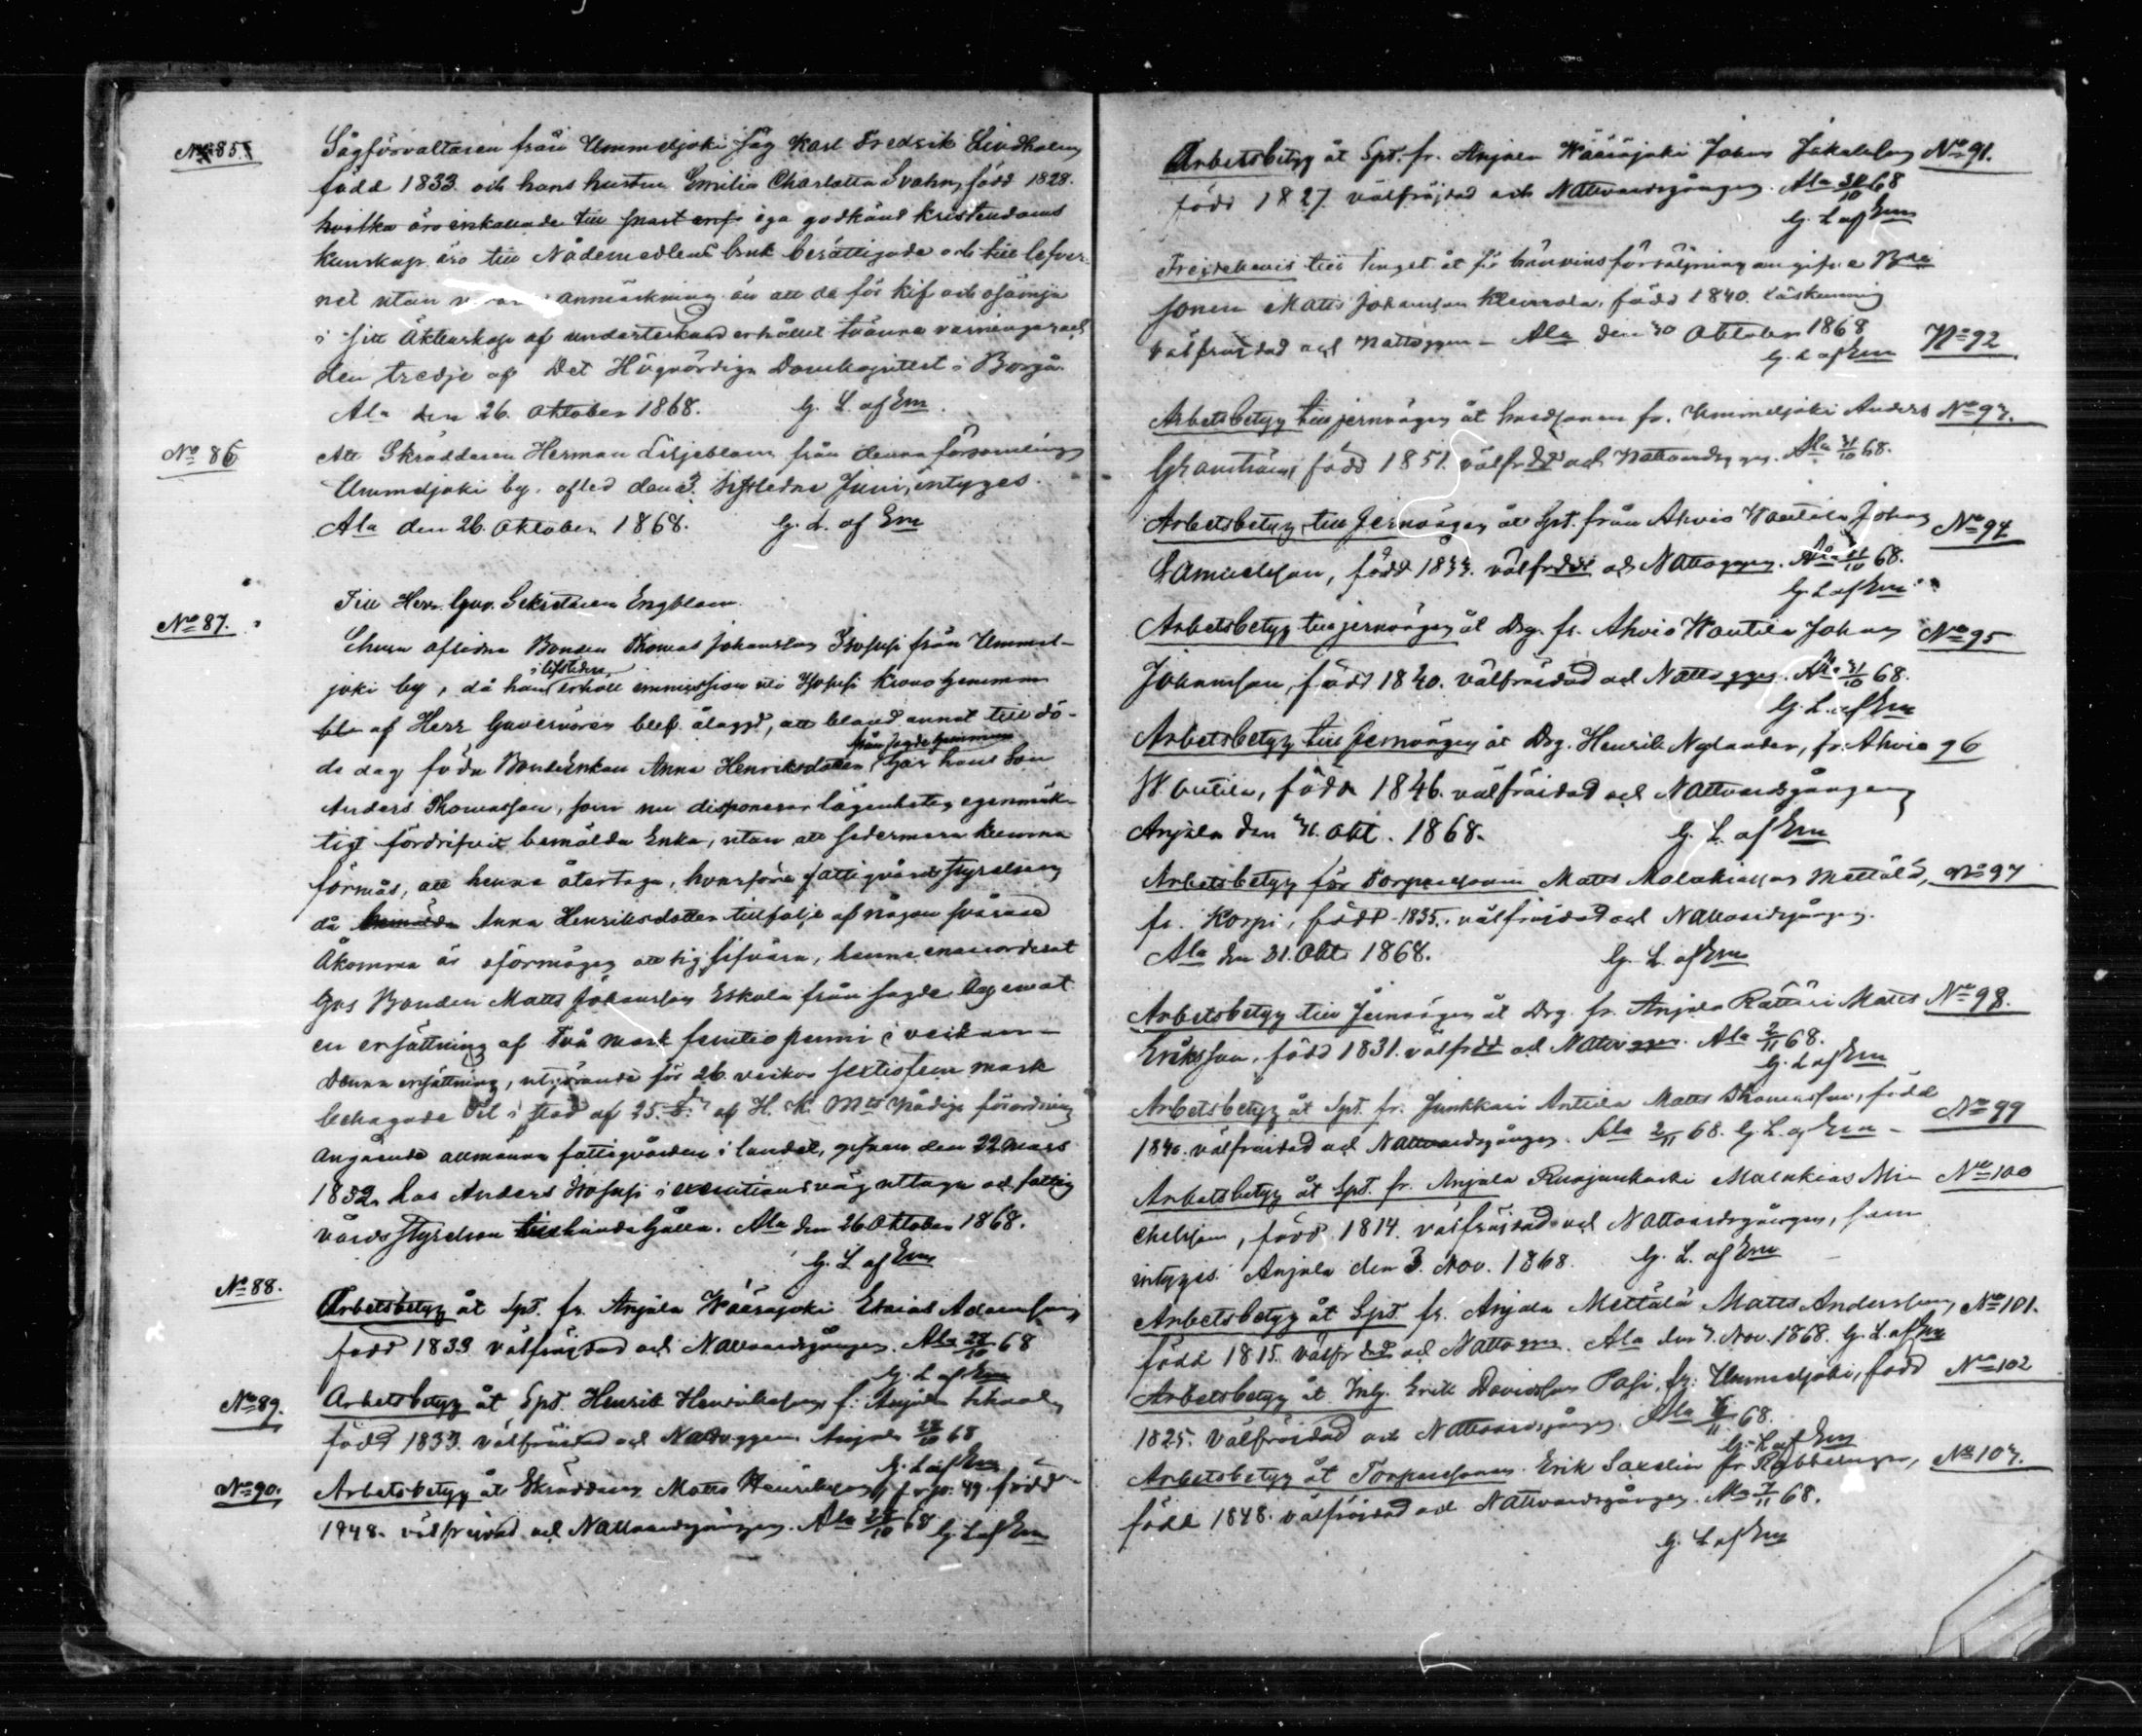 No 85.
Sågförvaltaren från Ummeljoki såg Karl Fredrik Lindholm,
född 1833 och hans hustru Emilia Charlotta Svahn, född 1828.
hvilka äro inkallade till ega godkänd kristendoms
kunskap äro till Nådemedlens bruk berättigade och till lefver-
net utan annan anmärkning än att de för kif och osämja
i sitt Äktenskap af undertecknad erhållit tvänne varningar och
den tredje af Det Högvördiga Domkapitlet i Borgå.
Ala den 26. Oktober 1868. G. L. af Em
No 86
Att Skräddaren Herman Liljeblom från denna församling
Ummeljoki by, afled den 3. sistledne Juni, intygas.
Ala den 26. Oktober 1868. G. L. af Em
Till Herr Guv. Sekreteraren Engblom.
No 87.
Ehuru aflidne Bonden Thomas Johansson Irosusi från Ummel-
i lifstiden
joki by, då han erhöll immission uti Krono hemman
blef af Herr Guvernören blef ålagd, att bland annat till dö-
från sagde hemman
de dag föda BondeEnkan Anna Henriksdotter, har hans Son
Anders Thomasson, som nu disponerar lägenheten egenmäk-
tigt fördrifvit bemälda Enka, utan att sedermera kunna
förmås, att henne återtaga, hvarföre fattigvårdsstyrelsen
då bemälda Anna Henriksdotter tillfölje af någon svårare
Åkomma är oförmögen att sig sifvära, henne
hos Bonden Matts Johansson Eskola från sagde by emot
en ersättning af två mark femtio penni i veckan -
Denna ersättning, utgörande för 26. veckor sextiofem mark
behagade Tit i stöd af 25. § af H. K. Mts Nådiga förordning
Angående allmänna fattigvården i landet, gifven den 22 Mars
1852 hos Anders i executions väg uttaga och fattig
vårds styrelsen tillhanda hålla. Ala den 26 Oktober 1868.
G. L. af Em
No 88.
Arbetsbetyg åt Spt. fr. Anjala Wääräjoki Esaias Adamsson,
född 1833 välfräjdad och Nattvardsgången. Ala 28/10 68
G. L. af Em
No 89.
Arbetsbetyg åt Spt. Henrik Henriksson f. Anjala
född 1833. välfräjdad och Nattvggen Anjala 28/10 68
G. L. af Em
No 90.
Arbetsbetyg åt Skräddaren Matts Henriksson, fr. 49. född
1848. välfrejdad och Nattvardsgången. Ala 28/10 68 G. L. af Em
Arbetsbetyg åt Spt. fr. Anjala Wääräjoki Johan Jakobsson No 91.
född 1827 välfräjdad och Nattvardsgången. Ala 30/10 68
G. L. af Em
Frejdebevis till tinget åt för bränvinsförsäljning angifne Bde
sonen Matts Johansson född 1840. läskunnig
välfräjdad och nattvggen - Ala den 30 Oktober 1868 No 92
G. L. af Em
Arbetsbetyg till jernvägen åt Smedsonen fr. Ummeljoki Anders No 93.
född 1851. välfrdd och Nattvardsgng. Ala 31/10 68.
Arbetsbetyg till Jernvägen åt Spt. från Ahvio Wantila Johan No 94
Samuelsson, född 1833. välfrdd och Nattvggn. Ala 31/10 68.
G. L. af Em
Arbetsbetyg till jernvägen åt Drg. fr. Ahvio Wantila Johan No 95
Johansson, född 1840. välfräjdad och Nattvggn. Ala 31/10 68.
G. L. af Em
Arbetsbetyg till jernvägen åt Drg. Henrik Nylander, fr. Ahvio 96
Wantila, född 1846. välfräjdad och Nattvardsgången
Anjala den 31. Okt. 1868. G. L. af Em
Arbetsbetyg för Torparesonen Matts Malakiasson Mettälä, No 97
fr. Korpi, född 1835. välfräjdad och Nattvardsgången.
Ala den 31. Okt 1868. G. L. af Em
Arbetsbetyg till Jernvägen åt Drg. fr. Anjala Rättäri Matts No 98.
Eriksson, född 1831. välfrdd och Nattvggn. Ala 2/11 68.
G. L. af Em
Arbetsbetyg åt Spt. fr. Junkkari Anttila Matts Thomasson, född
1840. välfräjdad och Nattvardsgången. Ala 2/11 68. G. L. af Em - No 99
Arbetsbetyg åt Spt. fr. Anjala Malakias Mi- No 100
chelsson, född 1814. välfräjdad och Nattvardsgången, som
intygas. Anjala den 3. Nov. 1868. G. L. af Em
Arbetsbetyg åt Spt. fr. Anjala Mettälä Matts Andersson, No 101.
född 1815. välfrdad och Nattvggn. Ala den 3. Nov. 1868. G. L. af Em
Arbetsbetyg åt Inh. Erik Davidsson Pasi, fr. Ummeljoki, född No 102
1825. välfräjdad och Nattvardsgången. Ala 68.
G. L. af Em
Arbetsbetyg åt Torparesonen Erik Saxelin fr. Rabbelugn, No 103.
född 1848. välfräjdad och Nattvardsgången. Ala 7/11 68.
G. L. af Em